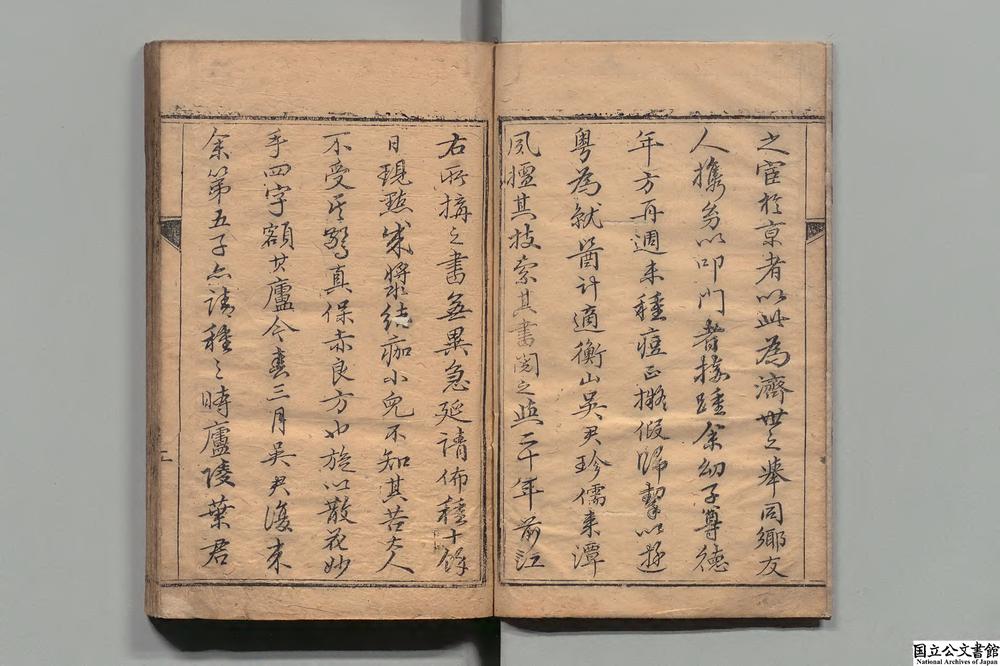 之宦於京者以此為濟世之舉同鄉友
人攜匆以叩門者接踵余幼子尊德
年方再週未種痘正擬假歸挈以遊
粵為就醫計適衡山吳君珍儒來潭
夙擅其技索其書閱之與二十年前江
右所購之書無異急延請佈種十餘
日現點成漿結痂小兒不知其苦大人
不受其驚真保赤良方也旋以散花妙
手四字額其廬今春三月吳君復來
余第五子亦請種之時廬陵葉君
三
国立公文書館
National Archives of Japan